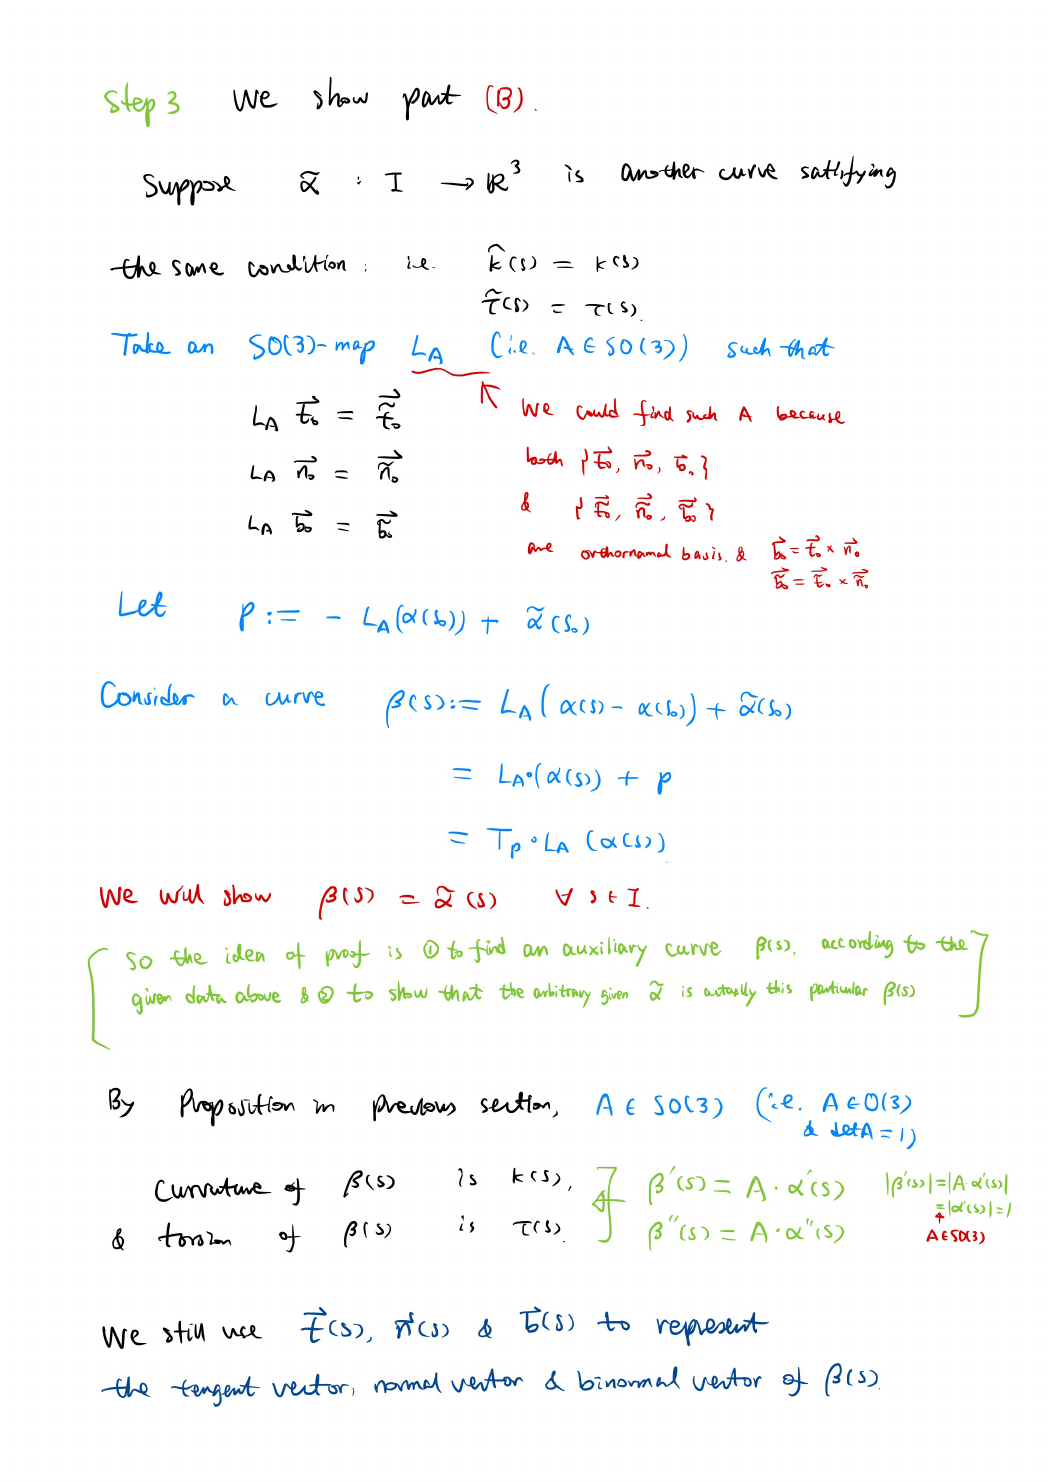 Step 3 We show part (B).
Suppose α̃ : I → ℝ³ is another curve satisfying
the same condition : i.e. k̂(s) = k(s)
τ̃(s) = τ(s).
Take an SO(3)-map L_A (i.e. A ∈ SO(3)) such that
L_A t⃗₀ = t̃⃗₀
L_A n⃗₀ = ñ⃗₀
L_A b⃗₀ = b̃⃗₀
We could find such A because
both {t⃗₀, n⃗₀, b⃗₀}
& {t̃⃗₀, ñ⃗₀, b̃⃗₀}
are orthornamal basis. & b⃗₀ = t⃗₀ × n⃗₀
b̃⃗₀ = t̃⃗₀ × ñ⃗₀
Let p := - L_A(α(s₀)) + α̃(s₀)
Consider a curve β(s) := L_A(α(s) - α(s₀)) + α̃(s₀)
= L_A∘(α(s)) + p
= T_p ∘ L_A (α(s)).
We will show β(s) = α̃(s) ∀ s ∈ I.
So the idea of proof is ① to find an auxiliary curve β(s), according to the
given data above & ② to show that the arbitrary given α̃ is actually this particular β(s)
By Proposition in previous section, A ∈ SO(3) (i.e. A ∈ O(3)
& det A = 1)
Curvature of β(s) is k(s),
& torsion of β(s) is τ(s).
β'(s) = A · α'(s)
β''(s) = A · α''(s)
|β'(s)| = |A·α'(s)|
= |α'(s)| = 1
A ∈ SO(3)
We still use t⃗(s), n⃗(s) & b⃗(s) to represent
the tangent vector, normal vector & binormal vector of β(s).